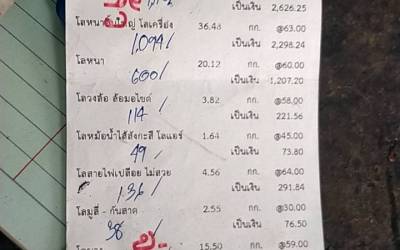 เป็นเงิน 2,626.25
36.48 กก. @63.00
1,094/ เป็นเงิน 2,298.24
โลหนา 20.12 กก. @60.00
600/ เป็นเงิน 1,207.20
โลวงล้อ ล้อมอไซด์ 3.82 กก. @58.00
114/ เป็นเงิน 221.56
โลหม้อน้ำไส้สังกะสี โลแอร์ 1.64 กก. @45.00
49/ เป็นเงิน 73.80
โลสายไฟเปลือย ไม่สวย 4.56 กก. @64.00
136/ เป็นเงิน 291.84
โลมู่ลี่ - กันสาด 2.55 กก. @30.00
38/ เป็นเงิน 76.50
15.50 กก. @59.00